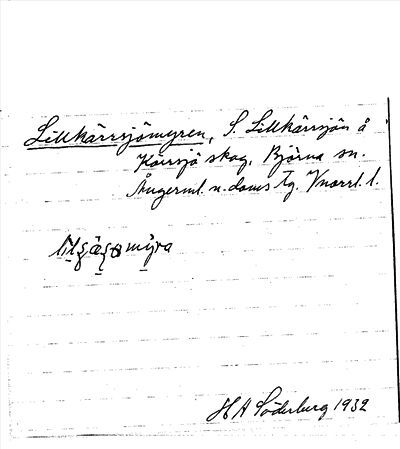 Lillkärrsjömyren, S. Lillkärrsjön å
Kärrsjö skog, Björna sn.
Ångerml. n. doms tg. Vnorrl. l.
myra
H A Söderberg 1932